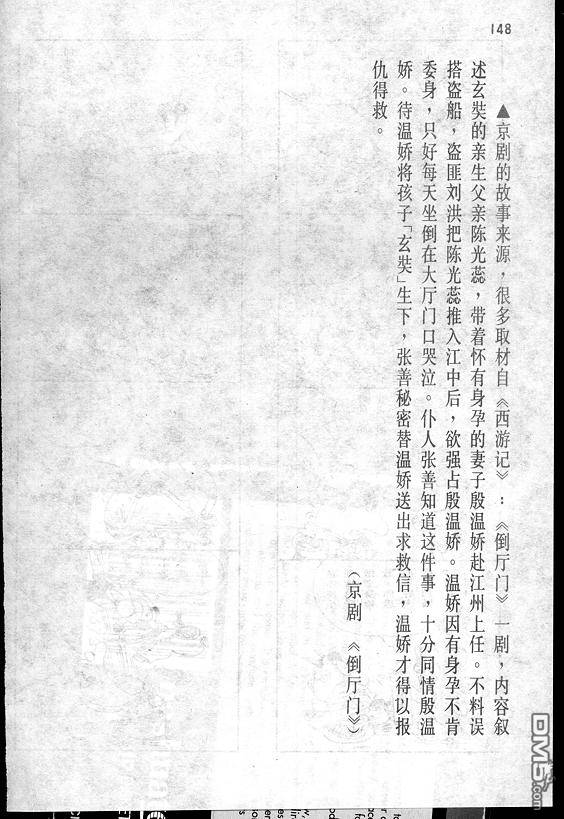 148
▲京剧的故事来源，很多取材自《西游记》：《倒厅门》一剧，内容叙
述玄奘的亲生父亲陈光蕊，带着怀有身孕的妻子殷温娇赴江州上任。不料误
搭盗船，盗匪刘洪把陈光蕊推入江中后，欲强占殷温娇。温娇因有身孕不肯
委身，只好每天坐倒在大厅门口哭泣。仆人张善知道这件事，十分同情殷温
娇。待温娇将孩子「玄奘」生下，张善秘密替温娇送出求救信，温娇才得以报
仇得救。
（京剧　《倒厅门》）
DM5.com